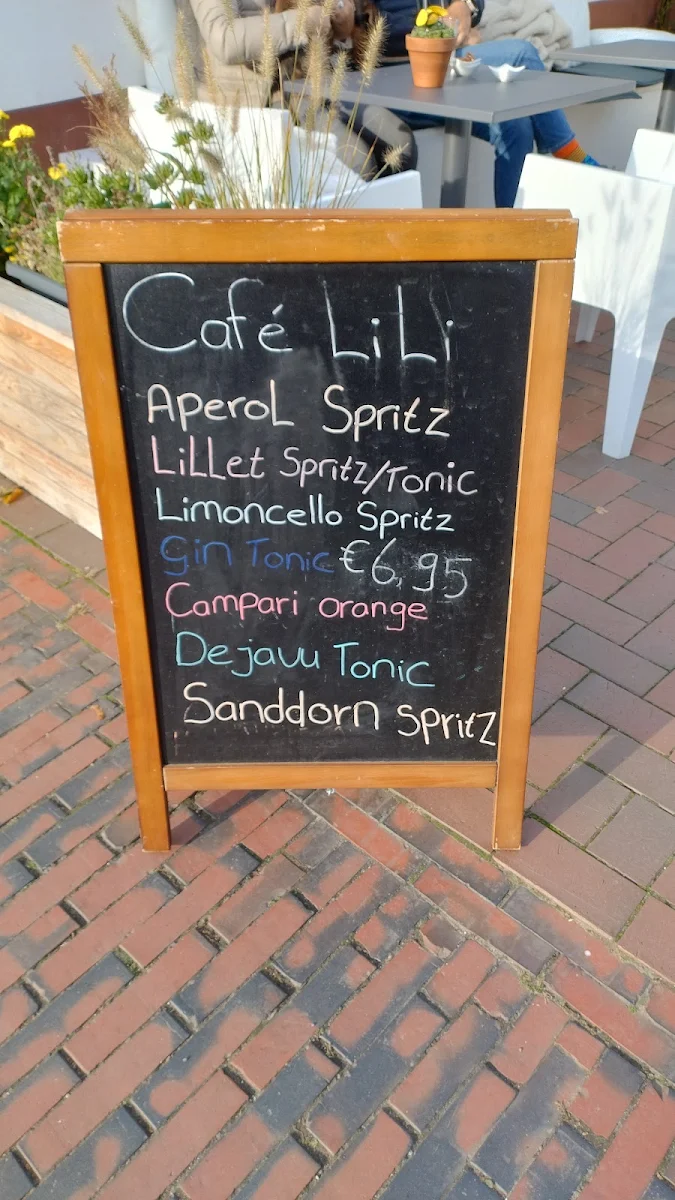 Café LiLi
Aperol Spritz
LiLLet Spritz/Tonic
Limoncello Spritz
Gin Tonic €6,95
Campari orange
Dejavu Tonic
Sanddorn Spritz